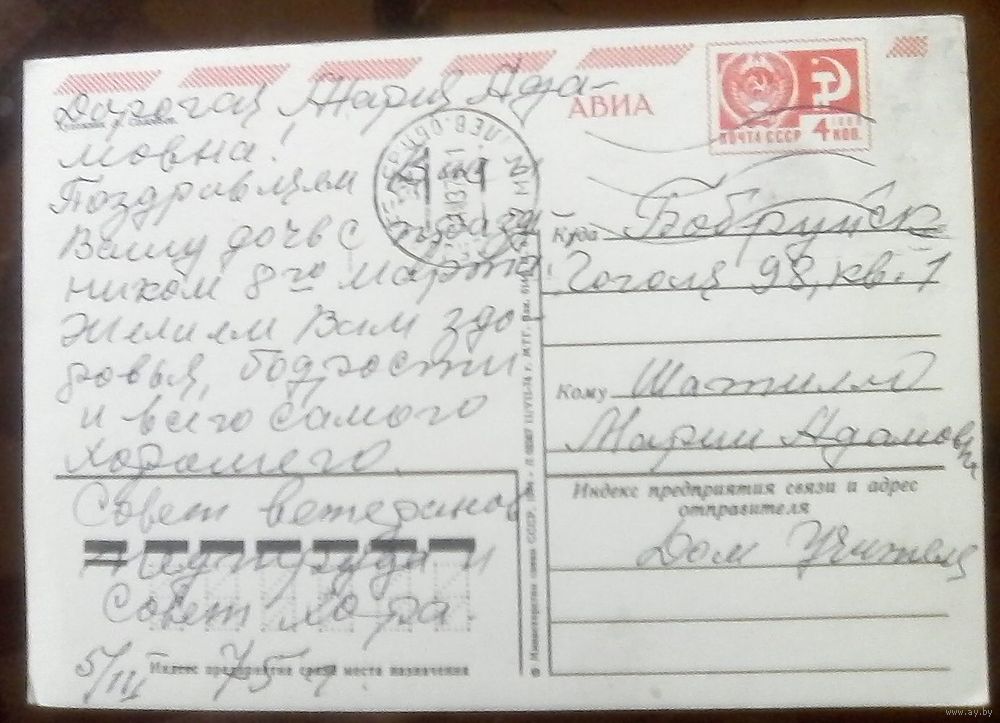 АВИА
ПОЧТА СССР 4 КОП.
Дорогая Мария Ада-
мовна!
Поздравляем Вас и
Вашу дочь с празд
ником 8го марта!
Желаем Вам здо-
ровья, бодрости
и всего самого
хорошего.
Совет ветеранов
и
Совет хора
5/III 75 г.
Индекс предприятия связи места назначения
Куда Бобруйск
Гоголя 98, кв. 1
Кому Шатилло
Марии Адамовне
Индекс предприятия связи и адрес
отправителя
Дом Учителя
© Министерство связи СССР,
www.ay.by